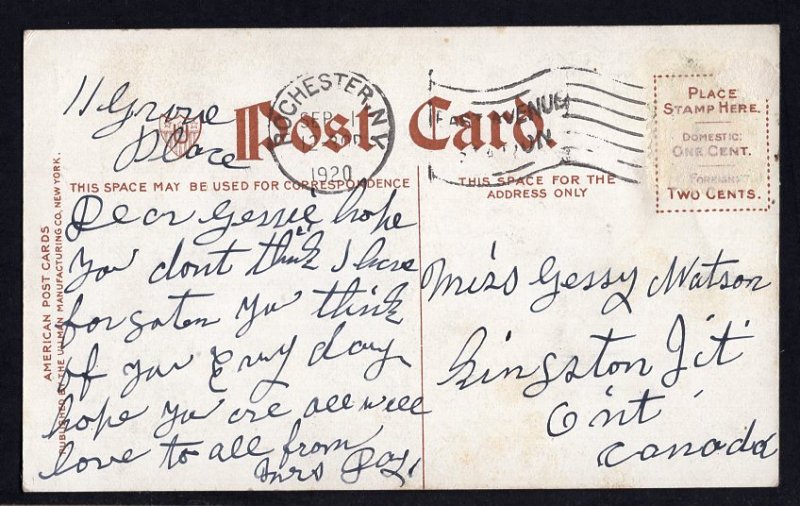 11 Grove
Place
Post Card
ROCHESTER, N.Y.
SEP 1
1920
EAST AVENUE
STATION
PLACE
STAMP HERE.
DOMESTIC:
ONE CENT.
FOREIGN:
TWO CENTS.
THIS SPACE MAY BE USED FOR CORRESPONDENCE
THIS SPACE FOR THE
ADDRESS ONLY
AMERICAN POST CARDS
PUBLISHED BY THE ULLMAN MANUFACTURING CO. NEW YORK.
Dear Gessie hope
you dont think I have
forgoten you think
of you Evry day
hope you are all well
love to all from
Mrs Day
Miss Gessy Watson
Kingston Jct
Ont
Canada